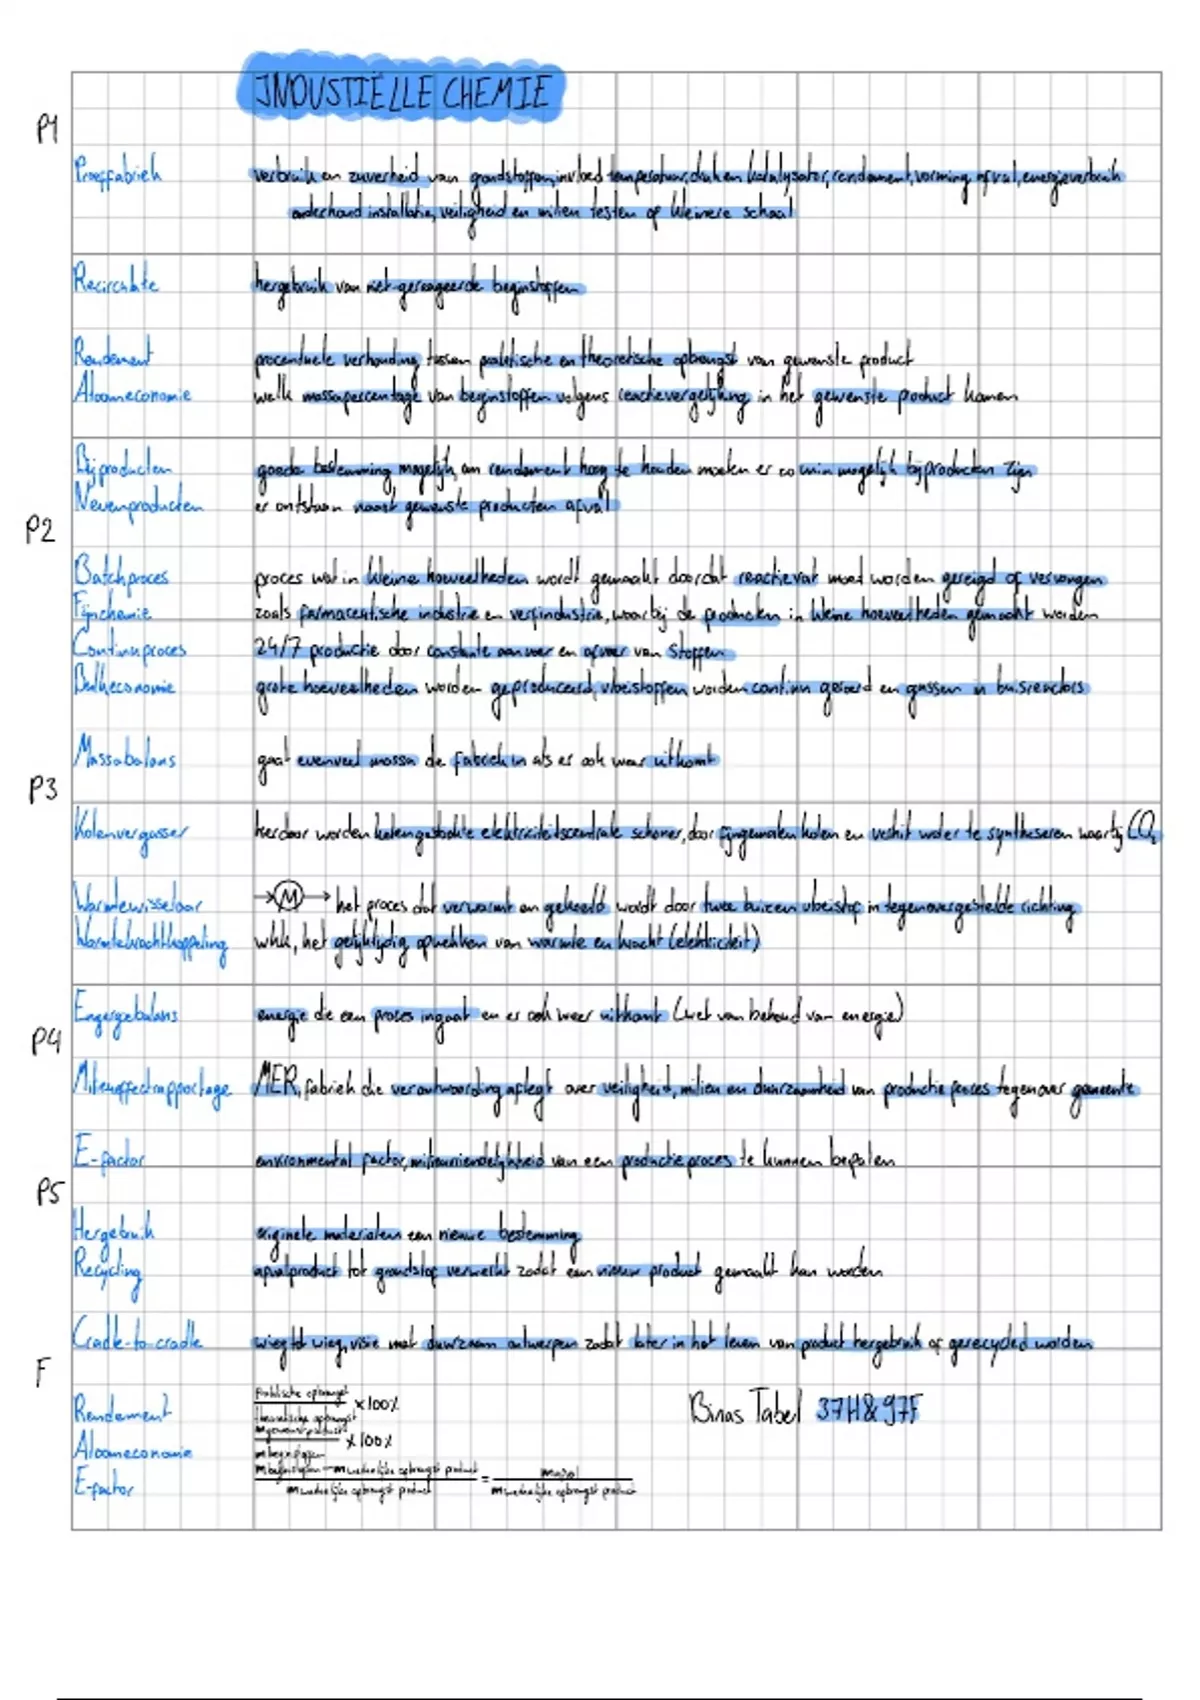 INDUSTIËLLE CHEMIE
P1
Proeffabriek verbruik en zuverheid van grondstoffen, invloed temperatuur, druk en katalysator, rendament, vorming afval, energieverbruik
onderhoud installatie, veiligheid en milieu testen op kleinere schaal
Recirculatie hergebruik van niet-gereageerde beginstoffen
Rendement procentuele verhouding tussen praktische en theoretische opbrengst van gewenste product
Atoomeconomie welk massapercentage van beginstoffen volgens reactievergelijking in het gewenste product komen
Bijproducten goede bestemming mogelijk, om rendament hoog te houden moeten er zo min mogelijk bijproducten zijn
Nevenproducten er ontstaan naast gewenste producten afval
P2
Batchproces proces wat in kleine hoeveelheden wordt gemaakt doordat reactievat moet worden gereigd of vervangen
Fijnchemie zoals farmaceutische industrie en verfindustrie, waarbij de producten in kleine hoeveelheden gemaakt worden
Continuproces 24/7 productie door constante aanvoer en afvoer van stoffen
Bulkeconomie grote hoeveelheden worden geproduceerd, vloeistoffen worden continu geroerd en gassen in buisreactors
Massabalans gaat evenveel massa de fabriek in als er ook weer uitkomt
P3
Kolenvergasser hierdoor worden kolengestookte elektriciteitscentrale schoner, door fijngemalen kolen en verhit water te syntheseren waarbij CO₂
Warmtewisselaar het proces dat verwarmt en gekoeld wordt door twee buizen vloeistof in tegenovergestelde richting
Warmtekrachtkoppeling wkk, het gelijktijdig opwekken van warmte en kracht (elektriciteit)
Engergiebalans energie die een proces ingaat en er ook weer uitkomt (wet van behoud van energie)
P4
Milieueffectrapportage MER, fabriek die verantwoording aflegt over veiligheid, milieu en duurzaamheid van productie proces tegenover gemeente
E-factor environmental factor, milieuvriendelijkheid van een productieproces te kunnen bepalen
P5
Hergebruik originele materialen een nieuwe bestemming
Recycling afvalproduct tot grondstof verwerkt zodat een nieuw product gemaakt kan worden
Cradle-to-cradle wieg tot wieg, visie met duurzaam ontwerpen zodat later in het leven van product hergebruik of gerecycled worden
F
Rendement praktische opbrengst / theoretische opbrengst x100% Binas Tabel 37H & 97F
Atoomeconomie m gewenst product / m beginstoffen x100%
E-factor m beginstoffen - m werkelijke opbrengst product / m werkelijke opbrengst product = m afval / m werkelijke opbrengst product